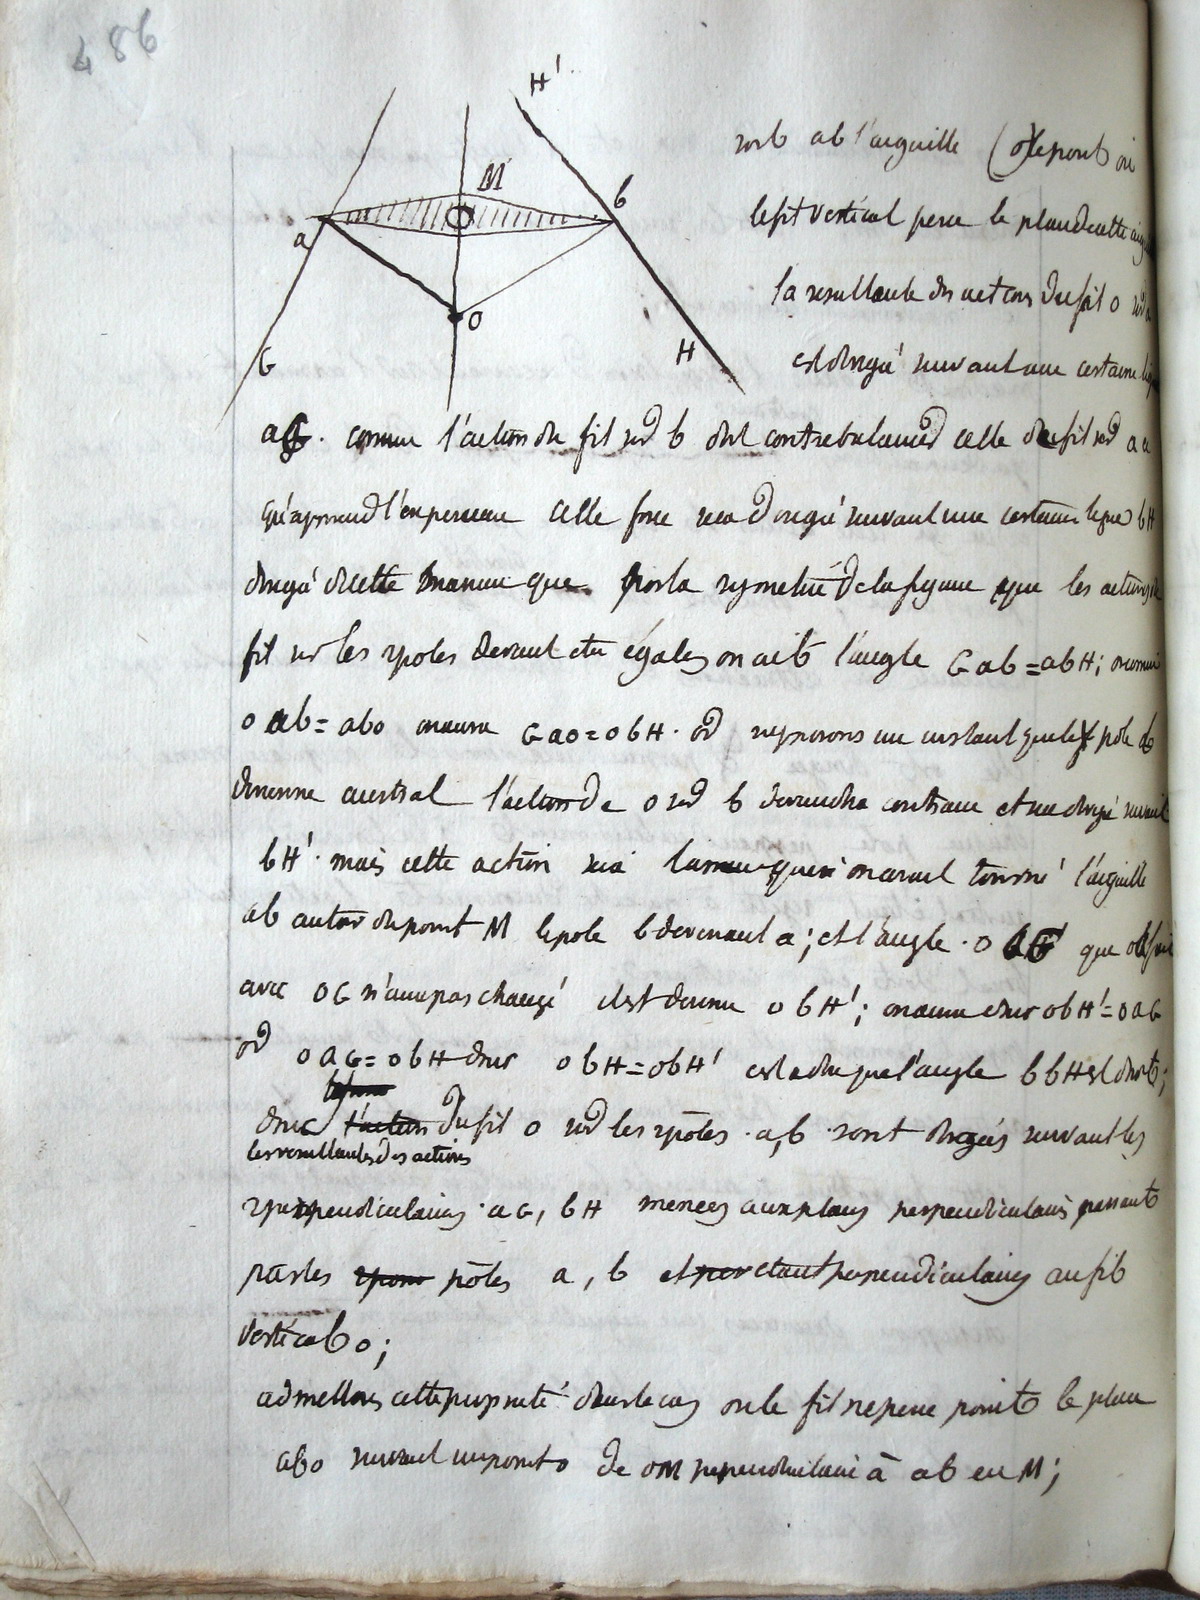 486
H'
M
b
a
O
G
H
soit ab l'aiguille (o) le point où
le fil vertical perce le plan de cette
la resultante des actions du fil o sur a
est dirigé suivant une certaine
aG. comme l'action du fil sur b doit contrebalancer celle du fil sur a
qu'apprend l'experience cette force sera dirigé suivant une certaine ligne bH
dirigé de cette maniere que par la symetrie de la figure que les actions du
fil sur les 2 poles devant etre égales on ait l'angle Gab=abH;
oab=abo on aura Gao=obH. or supposons un instant que le pole b
devienne austral l'action de o sur b deviendra contraire et sera dirigé suivant
bH'. mais cette action sera la meme que si on avait tourné l'aiguille
ab autour du point M le pole b devenant a; et l'angle o que
avec OG n'aura pas changé il est devenu obH'; on aura donc obH'=oaG
or oaG=obH donc obH=obH' est a dire que l'angle bbH est droit;
donc l'action du fil o sur les 2 pôles a,b sont dirigées suivant les
les resultantes des actions
2 perpendiculaires aG, bH menées aux plans perpendiculaires passant
par les pôles a, b et perpendiculaires au fil
vertical o;
admettons cette propriété dans le cas ou le fil ne perce point le plan
abo suivant un point o de oM perpendiculaire à ab en M;